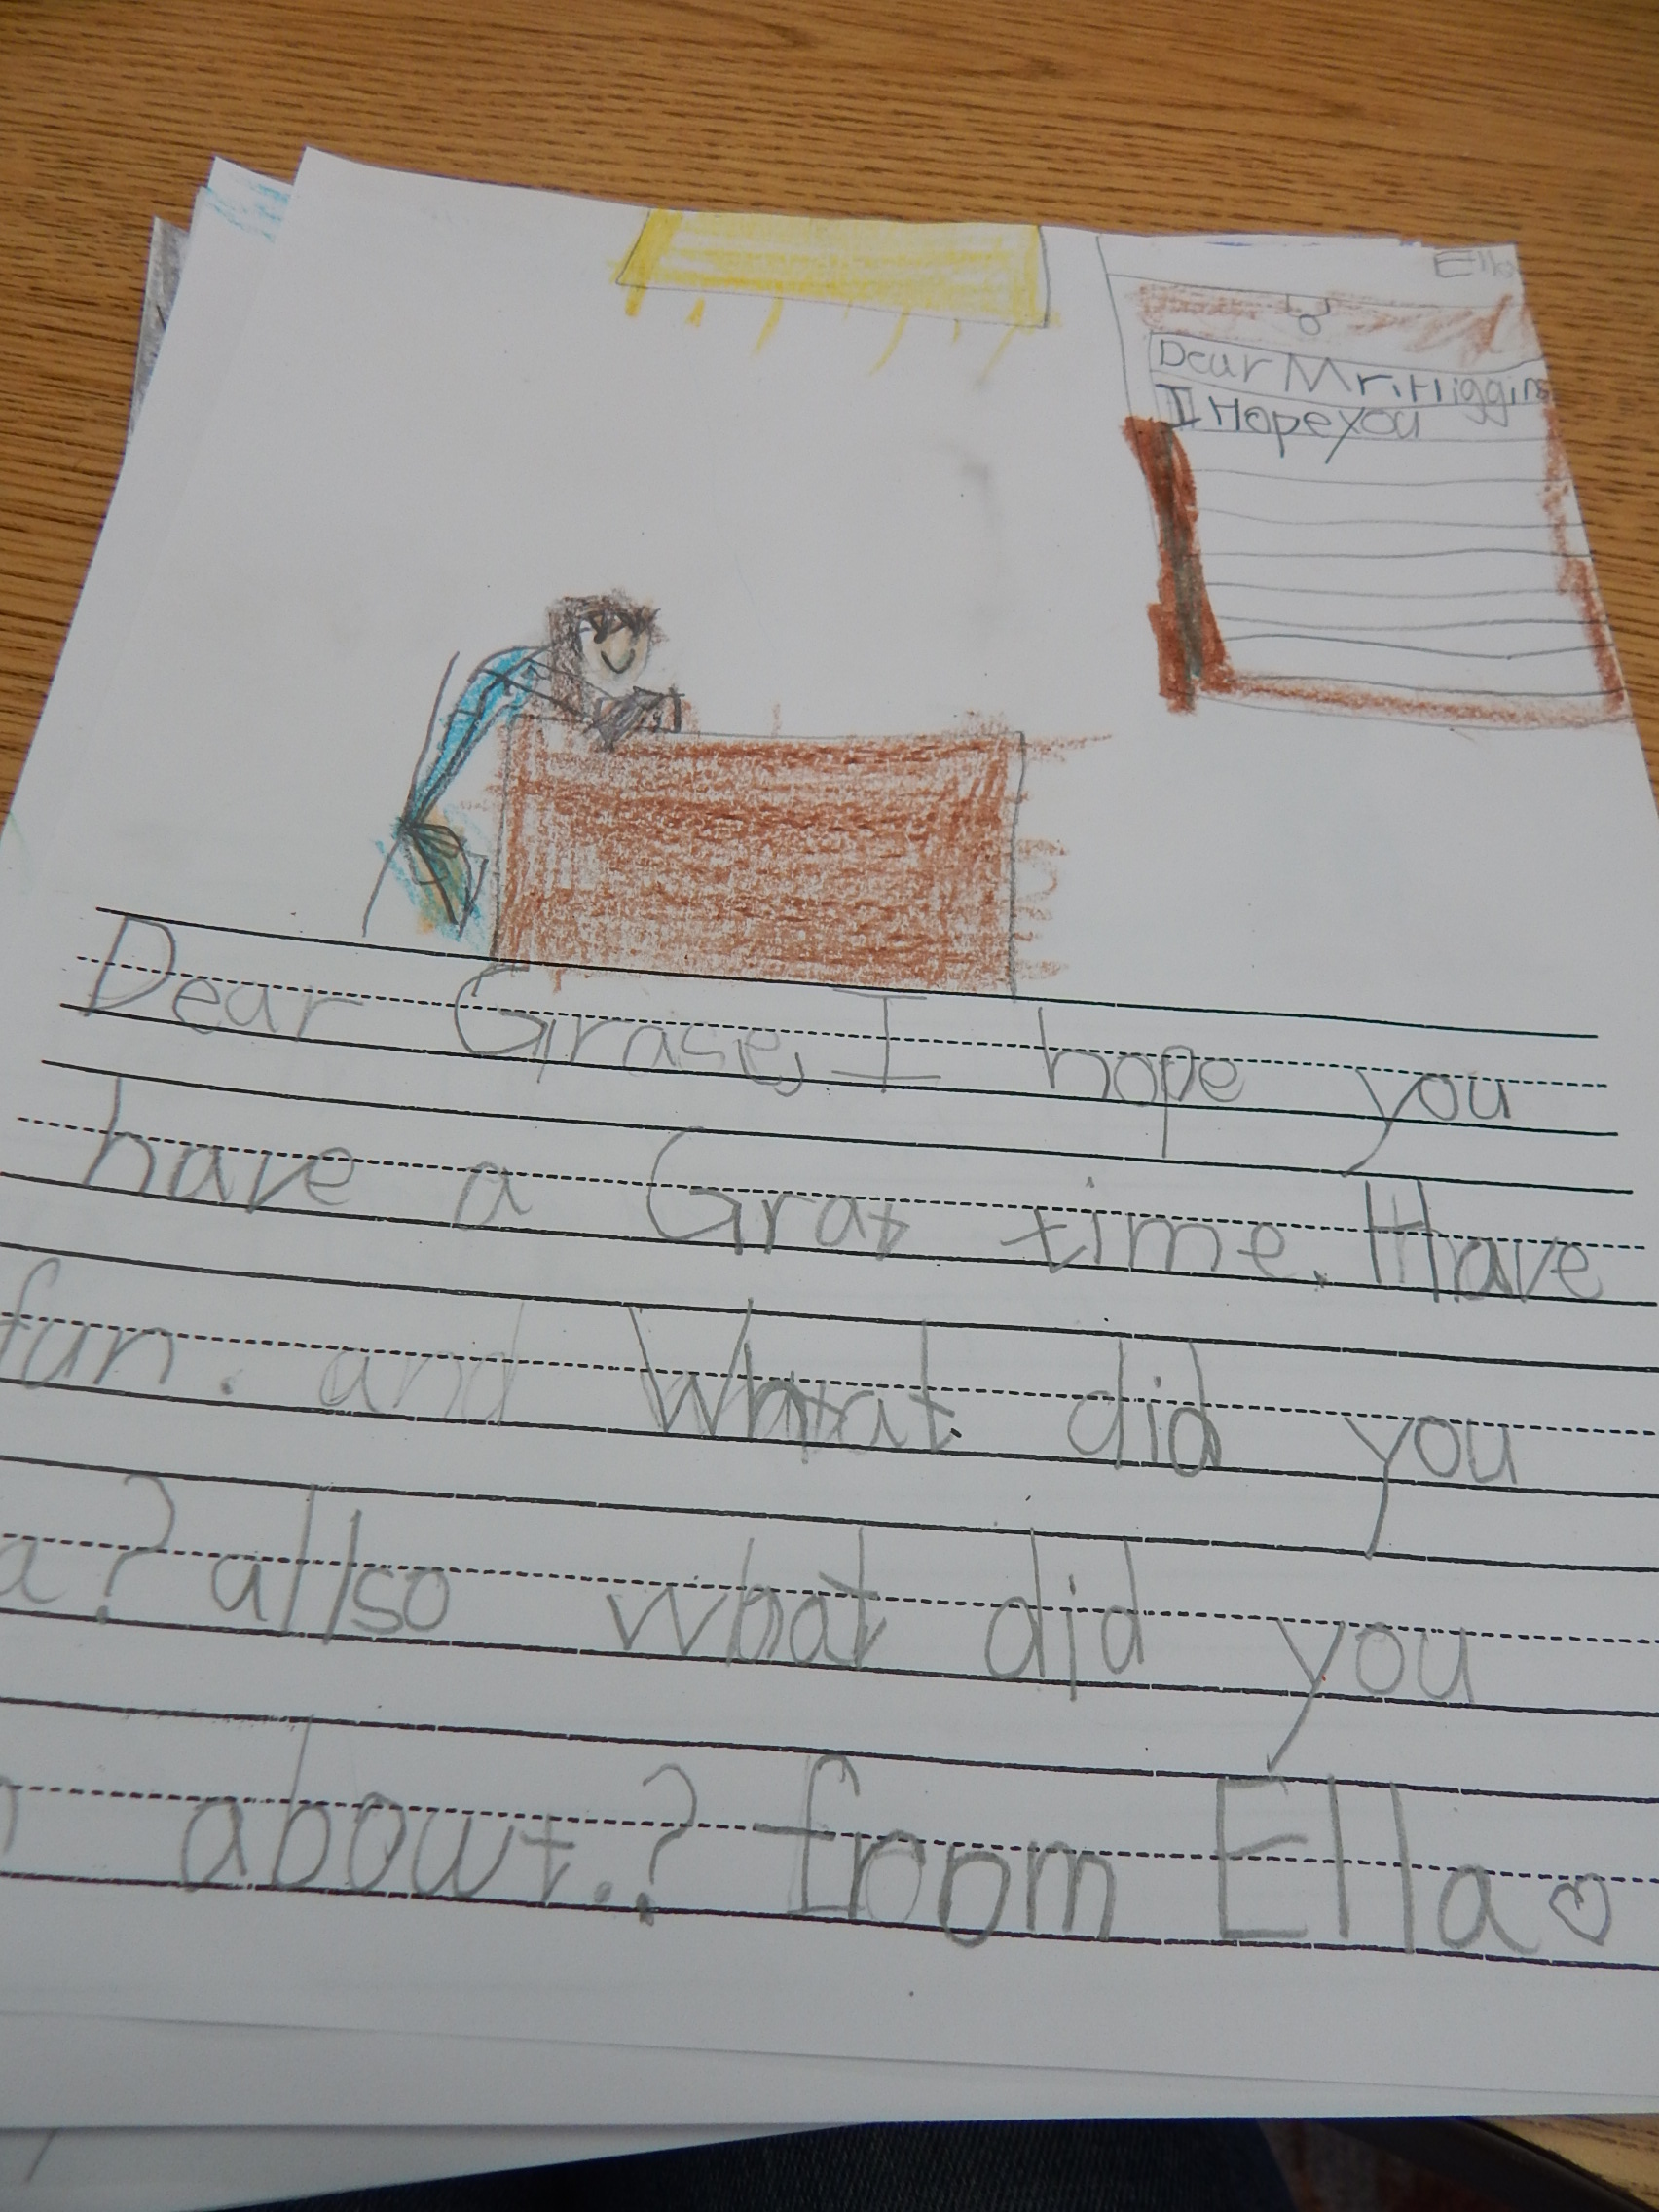 Ella
Dear Mr. Higgins
I Hope you
Dear Grase, I hope you
have a Grat time. Have
fun. and What. did you
a? allso what did you
abowt.? from Ella